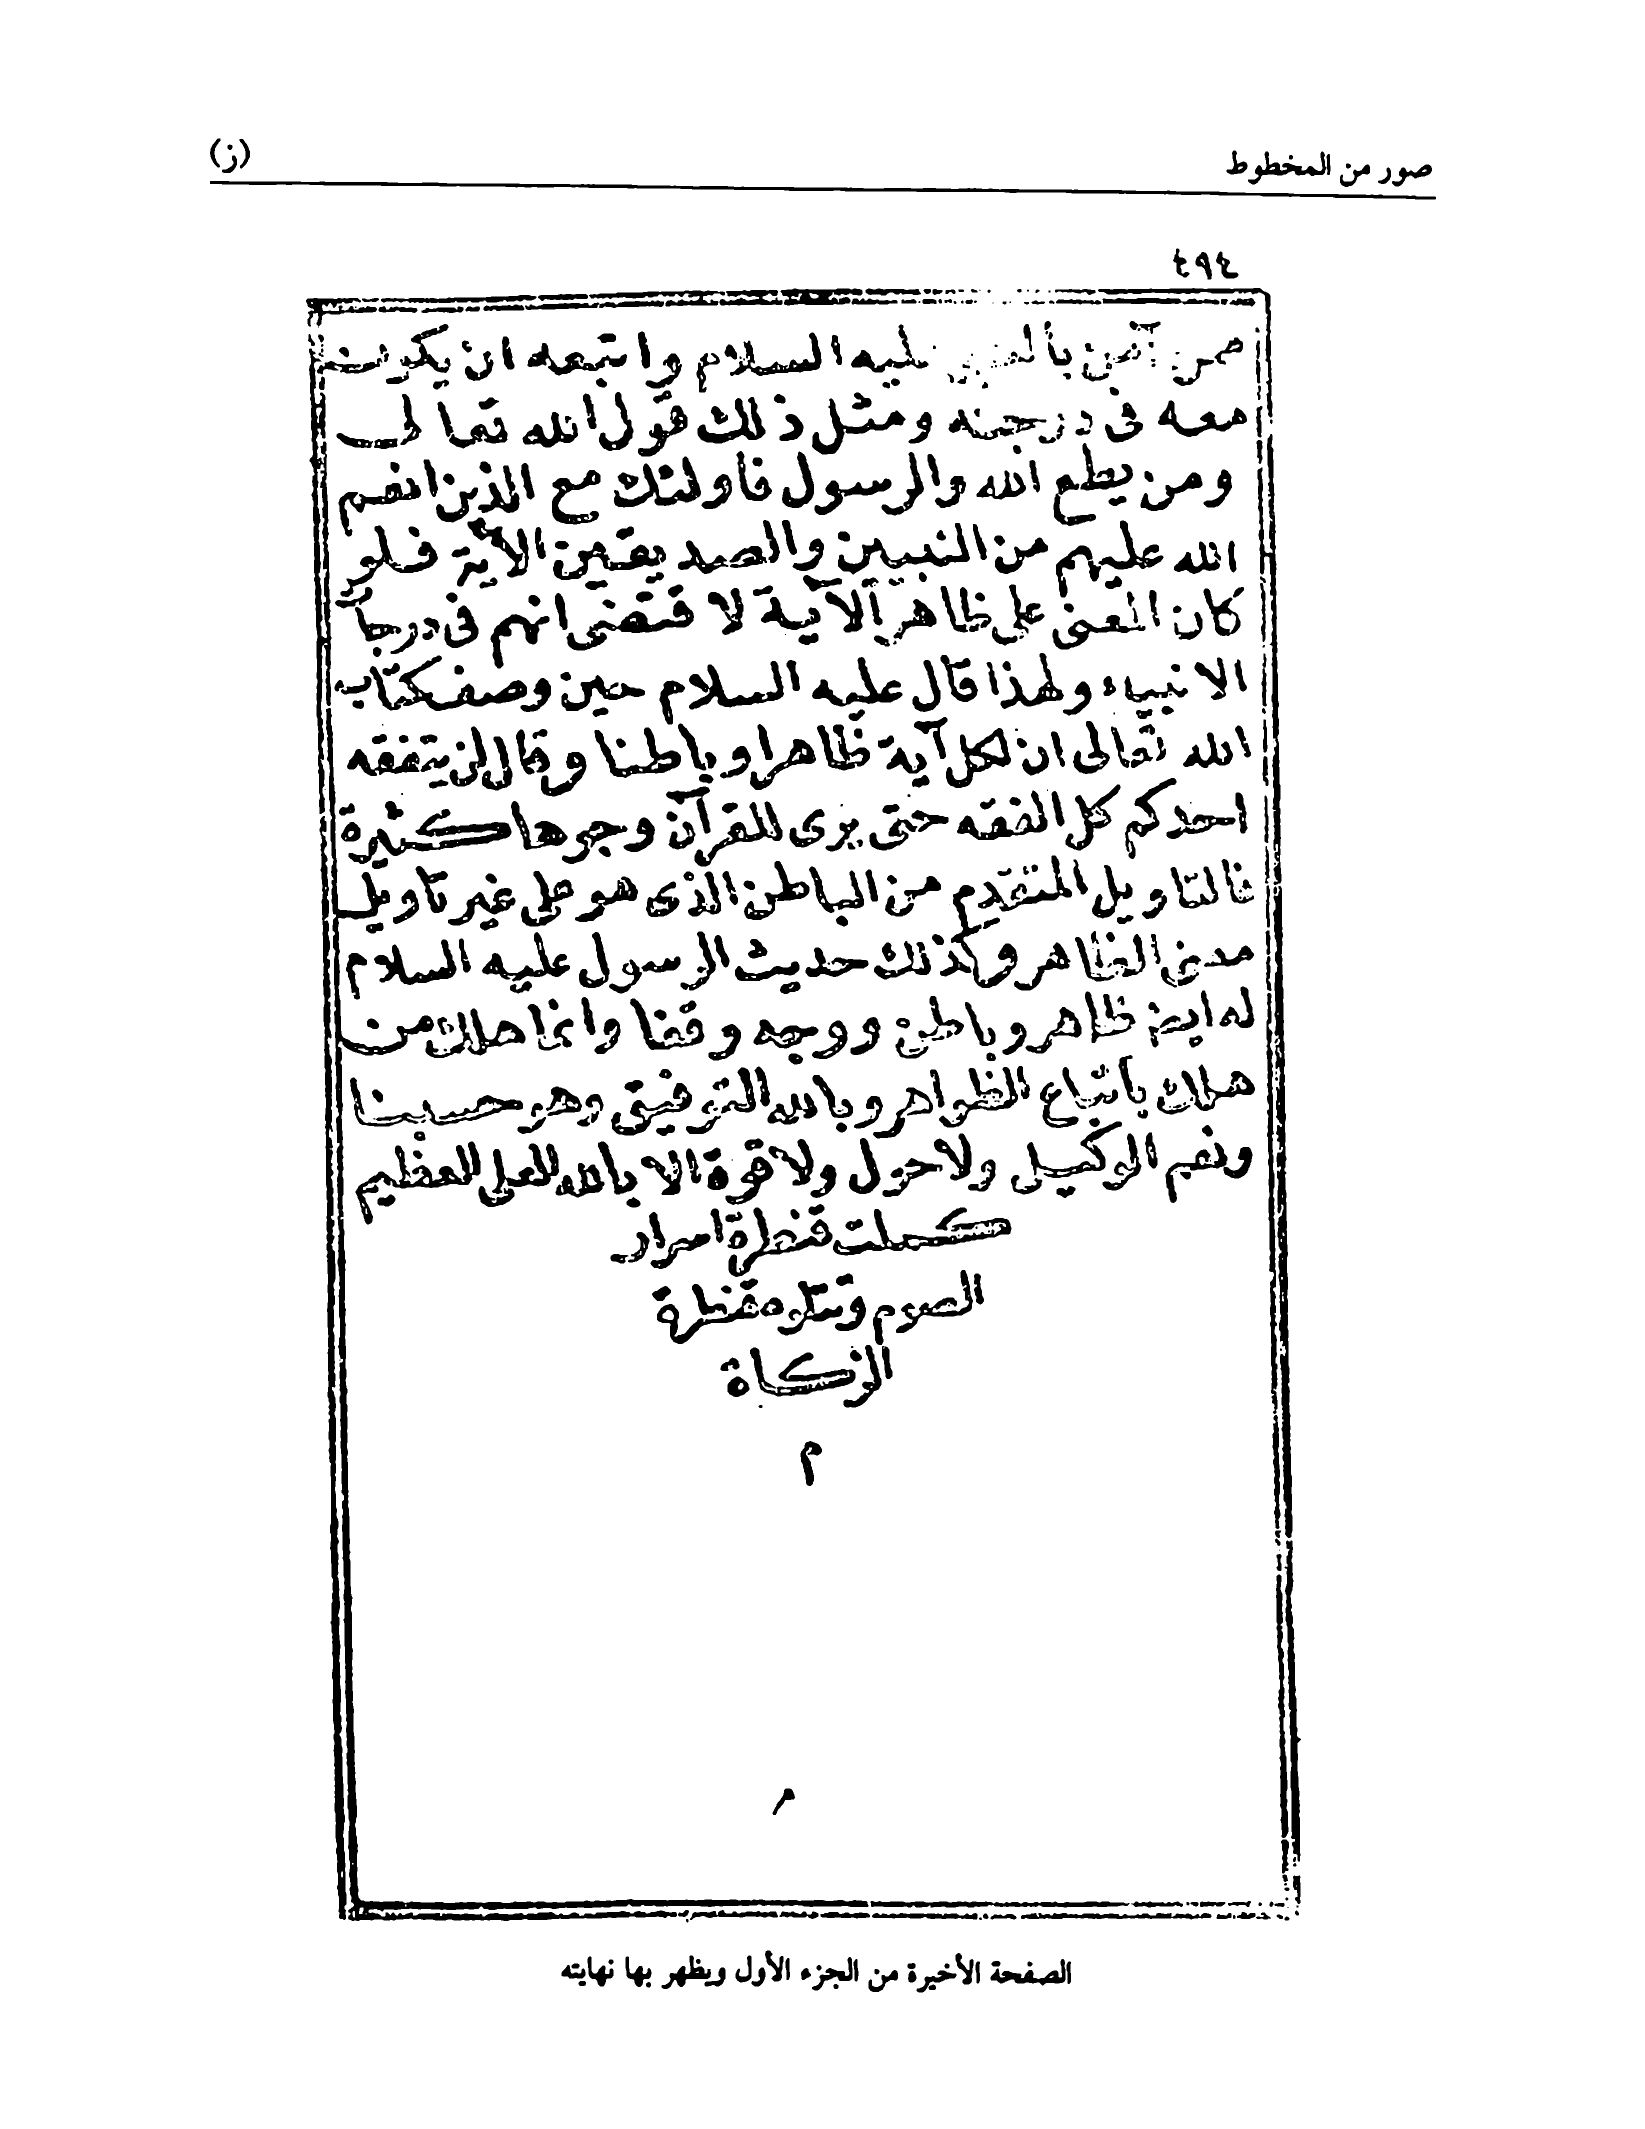 صور من المخطوط
(ز)
٤٩٤
من آمن بالنبي عليه السلام واتبعه ان يكون
معه فى درجته ومثل ذلك قول الله تعالى
ومن يطع الله والرسول فأولئك مع الذين انعم
الله عليهم من النبيين والصديقين الآية فلو
كان المعنى على ظاهر الآية لا قتضى انهم فى درجات
الانبياء ولهذا قال عليه السلام حين وصف كتاب
الله تعالى ان لكل آية ظاهرا وباطنا وقال لن يتفقه
احدكم كل الفقه حتى يرى للقرآن وجوها كثيرة
فالتاويل المتقدم من الباطن الذى هو على غير تاويل
معنى الظاهر وكذلك حديث الرسول عليه السلام
له ايض ظاهر وباطن ووجه وقفا وانما هلك من
هلك باتباع الظواهر وبالله التوفيق وهو حسبنا
ونعم الوكيل ولا حول ولا قوة الا بالله العلى العظيم
كملت قنطرة اسرار
الصوم وتتلوه قنطرة
الزكاة
م
الصفحة الأخيرة من الجزء الأول ويظهر بها نهايته